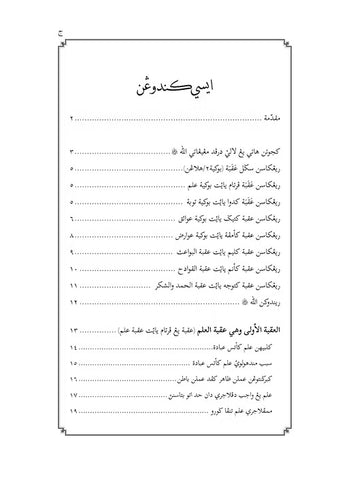 ج
ايسي كندوڠن
مقدّمة ٢
كجوئن هاتي يڠ لالي درڤد مڠيڠاتي الله ۞ ٣
ريڠكاسن سݢل عَقَبَة (بوكية٢/هلاڠن) ٥
ريڠكاسن عَقَبَة ڤرتام يائيت بوكية علم ٥
ريڠكاسن عَقَبَة كدوا يائيت بوكية توبة ٥
ريڠكاسن عقبة كتيݢ يائيت بوكية عوائق ٦
ريڠكاسن عقبة كأمڤة يائيت بوكية عوارض ٨
ريڠكاسن عقبة كليم يائيت عقبة البواعث ٩
ريڠكاسن عقبة كأنم يائيت عقبة القوادح ١٠
ريڠكاسن عقبة كتوجه يائيت عقبة الحمد والشكر ١١
ريندوكن الله ۞ ١٢
العقبة الأولى وهي عقبة العلم (عقبة يڠ ڤرتام يائيت عقبة علم) ١٣
كلبيهن علم كأتس عبادة ١٤
سبب مندهولوي علم كأتس عبادة ١٥
كبرݢنتوڠن عملن ظاهر كڤد عملن باطن ١٦
علم يڠ واجب دڤلاجري دان حد اتو بتاسن ١٧
ممڤلاجري علم تنڤا ݢورو ١٩